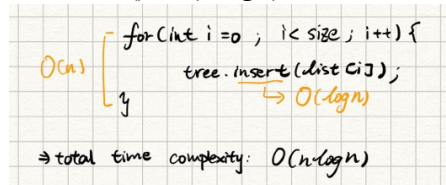 for(int i =0 ; i< size ; i++) {
O(n)
tree. insert (list [i]);
↳ O(logn)
}
⇒ total time complexity: O(n·logn)